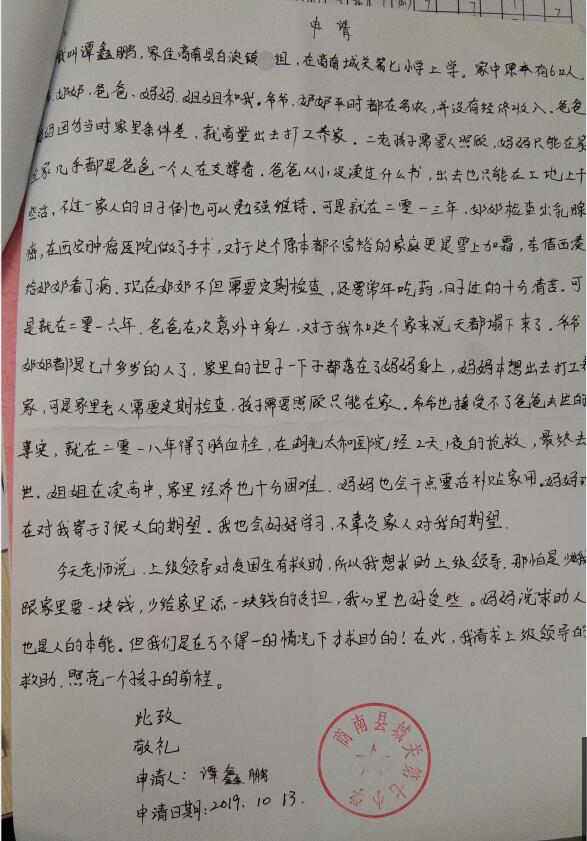 申请
我叫谭鑫鹏,家住商南县白浪镇 组,在商南城关第七小学上学。家中原本有6口人,
奶奶、爸爸、妈妈、姐姐和我。爷爷、奶奶平时都在务农,并没有经济收入。爸爸
妈因为当时家里条件差,就商量出去打工养家。二老孩子需要人照顾,妈妈只能在家
家几乎都是爸爸一个人在支撑着。爸爸从小没读过什么书,出去也只能在工地上干
些活,不过一家人的日子倒也可以勉强维持。可是就在二零一三年、奶奶检查出乳腺
癌,在西安肿瘤医院做了手术,对于这个原本都不富裕的家庭更是雪上加霜,东借西凑
给奶奶看了病。现在奶奶不但需要定期检查,还要常年吃药,日子过的十分清苦。可
是就在二零一六年,爸爸在次意外中身亡,对于我和这个家来说天都塌下来了。爷爷
奶奶都是七十多岁的人了,家里的担子一下子都落在了妈妈身上,妈妈本想出去打工养
家,可是家里老人需要定期检查,孩子需要照顾只能在家。爷爷也接受不了爸爸去世的
事实,就在二零一八年得了脑血栓,在湖北太和医院经2天1夜的抢救,最终去
世。姐姐在读高中,家里经济也十分困难。妈妈也会干点零活补贴家用。妈妈
在对我寄予了很大的期望。我也会好好学习,不辜负家人对我的期望。
今天老师说,上级领导对贫困生有救助,所以我想求助上级领导,那怕是少
跟家里要一块钱,少给家里添一块钱的负担,我心里也好受些。妈妈说求助人
也是人的本能。但我们是在万不得一的情况下才求助的!在此,我请求上级领导的
救助,照亮一个孩子的前程。
此致
敬礼
申请人:谭鑫鹏
申请日期:2019.10.13.
商南县城关第七小学